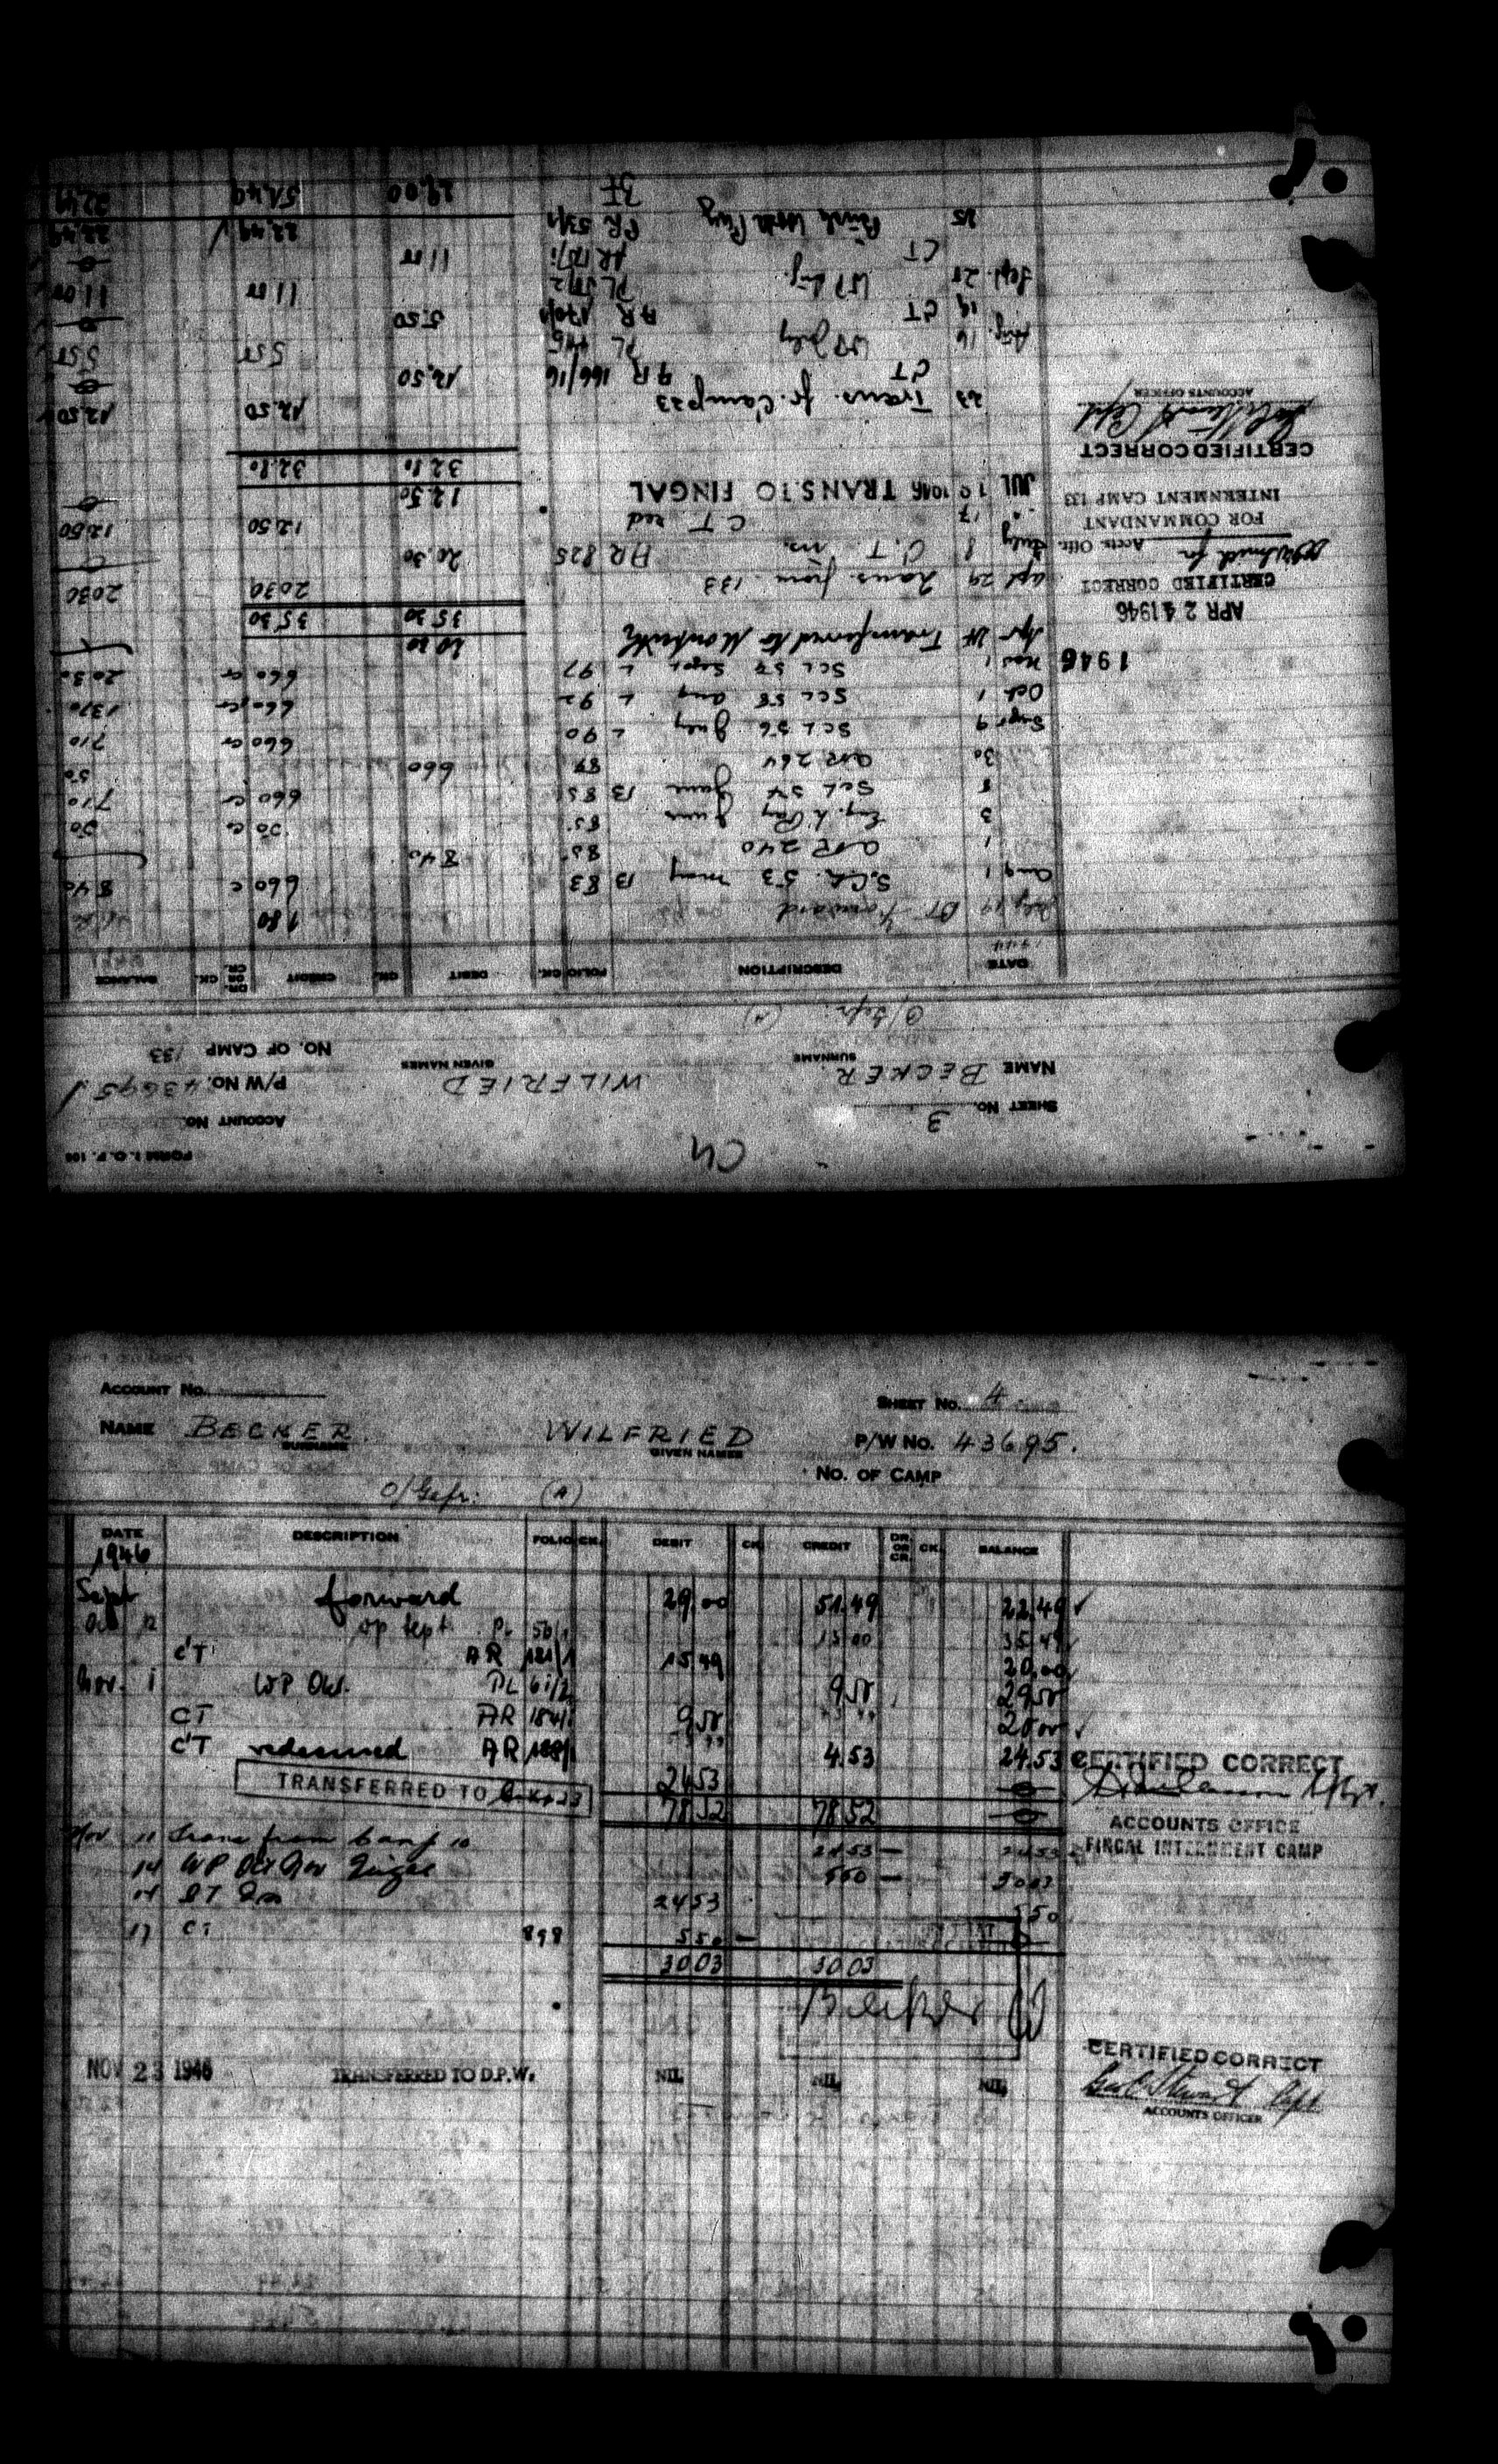 FORM I.O.P. 106
C4
SHEET No. 3
ACCOUNT NO.
NAME BECKER WILFRIED P/W NO. 43695
SURNAME GIVEN NAMES
NO. OF CAMP 133
O/Gefr. (A)
DATE DESCRIPTION FOLIO CK. DEBIT CK. CREDIT DR. OR CR. CK. BALANCE
1944
July 19 BT Forward 1 80
Aug 1 S.C.L. 53 May 13 83 6 60 c 8 40
1 AR 240 85 8 40
3 Eng. L. Pay June 85 50 Cr 50
8 SCL 54 June 13 85 6 60 Cr 7 10
30 AR 264 87 6 60 50
Sept 9 SCL 56 July L 90 6 60 Cr 7 10
Oct 1 SCL 58 Aug L 92 6 60 Cr 13 70
Nov 1 SCL 57 Sept L 97 6 60 Cr 20 30
1946
Apr 24 Transferred to Monteith 20 30
35 30 35 30
APR 24 1946
CERTIFIED CORRECT
for Accts. Offr.
FOR COMMANDANT
INTERNMENT CAMP 133
Apl 29 Trans. from 133 20 30 20 30
July 8 C.T. iss. AR 825 20.30
17 C.T. red 12.50 12.50
JUL 19 1946 TRANS. TO FINGAL 12.50
32.80 32.80
CERTIFIED CORRECT
ACCOUNTS OFFICER
23 Trans. fr. Camp 23 12.50 12.50
CT AR 166/16 12.50
Aug. 16 WP July PL 5 50 5 50
19 CT AR 170/1 5.50
Sept. 25 WP Aug. PL 11 00 11 00
CT AR 11 00
25 PR 53/1 22,49 22,49
29,00 51,49 22,49
ACCOUNT No.
SHEET No. 4
NAME BECKER. WILFRIED P/W No. 43695.
SURNAME GIVEN NAMES
NO. OF CAMP
O/Gefr. (A)
DATE DESCRIPTION FOLIO CK. DEBIT CK. CREDIT DR. OR CR. CK. BALANCE
1946
Sept forward 29,00 51,49 22,49
Oct 12 WP Sept PL 56/1 13 00 35,49
CT AR 181/1 15 49 20,00
Nov. 1 WP Okt. PL 61/2 9 50 29 50
CT AR 184/1 9 50 20 00
CT redeemed AR 188/1 4.53 24.53
TRANSFERRED TO 23 24 53
78 52 78 52
CERTIFIED CORRECT
ACCOUNTS OFFICE
FINGAL INTERNMENT CAMP
Nov 11 Trans from Camp 10 24 53 24 53
14 WP Oct Nov Fingal 5 50 30 03
14 CT Iss 24 53 5 50
17 CT 898 5 50
30 03 30 03
Becker W
NOV 23 1946 TRANSFERRED TO D.P.W. NIL NIL NIL
CERTIFIED CORRECT
Geo C Stewart Capt
ACCOUNTS OFFICER